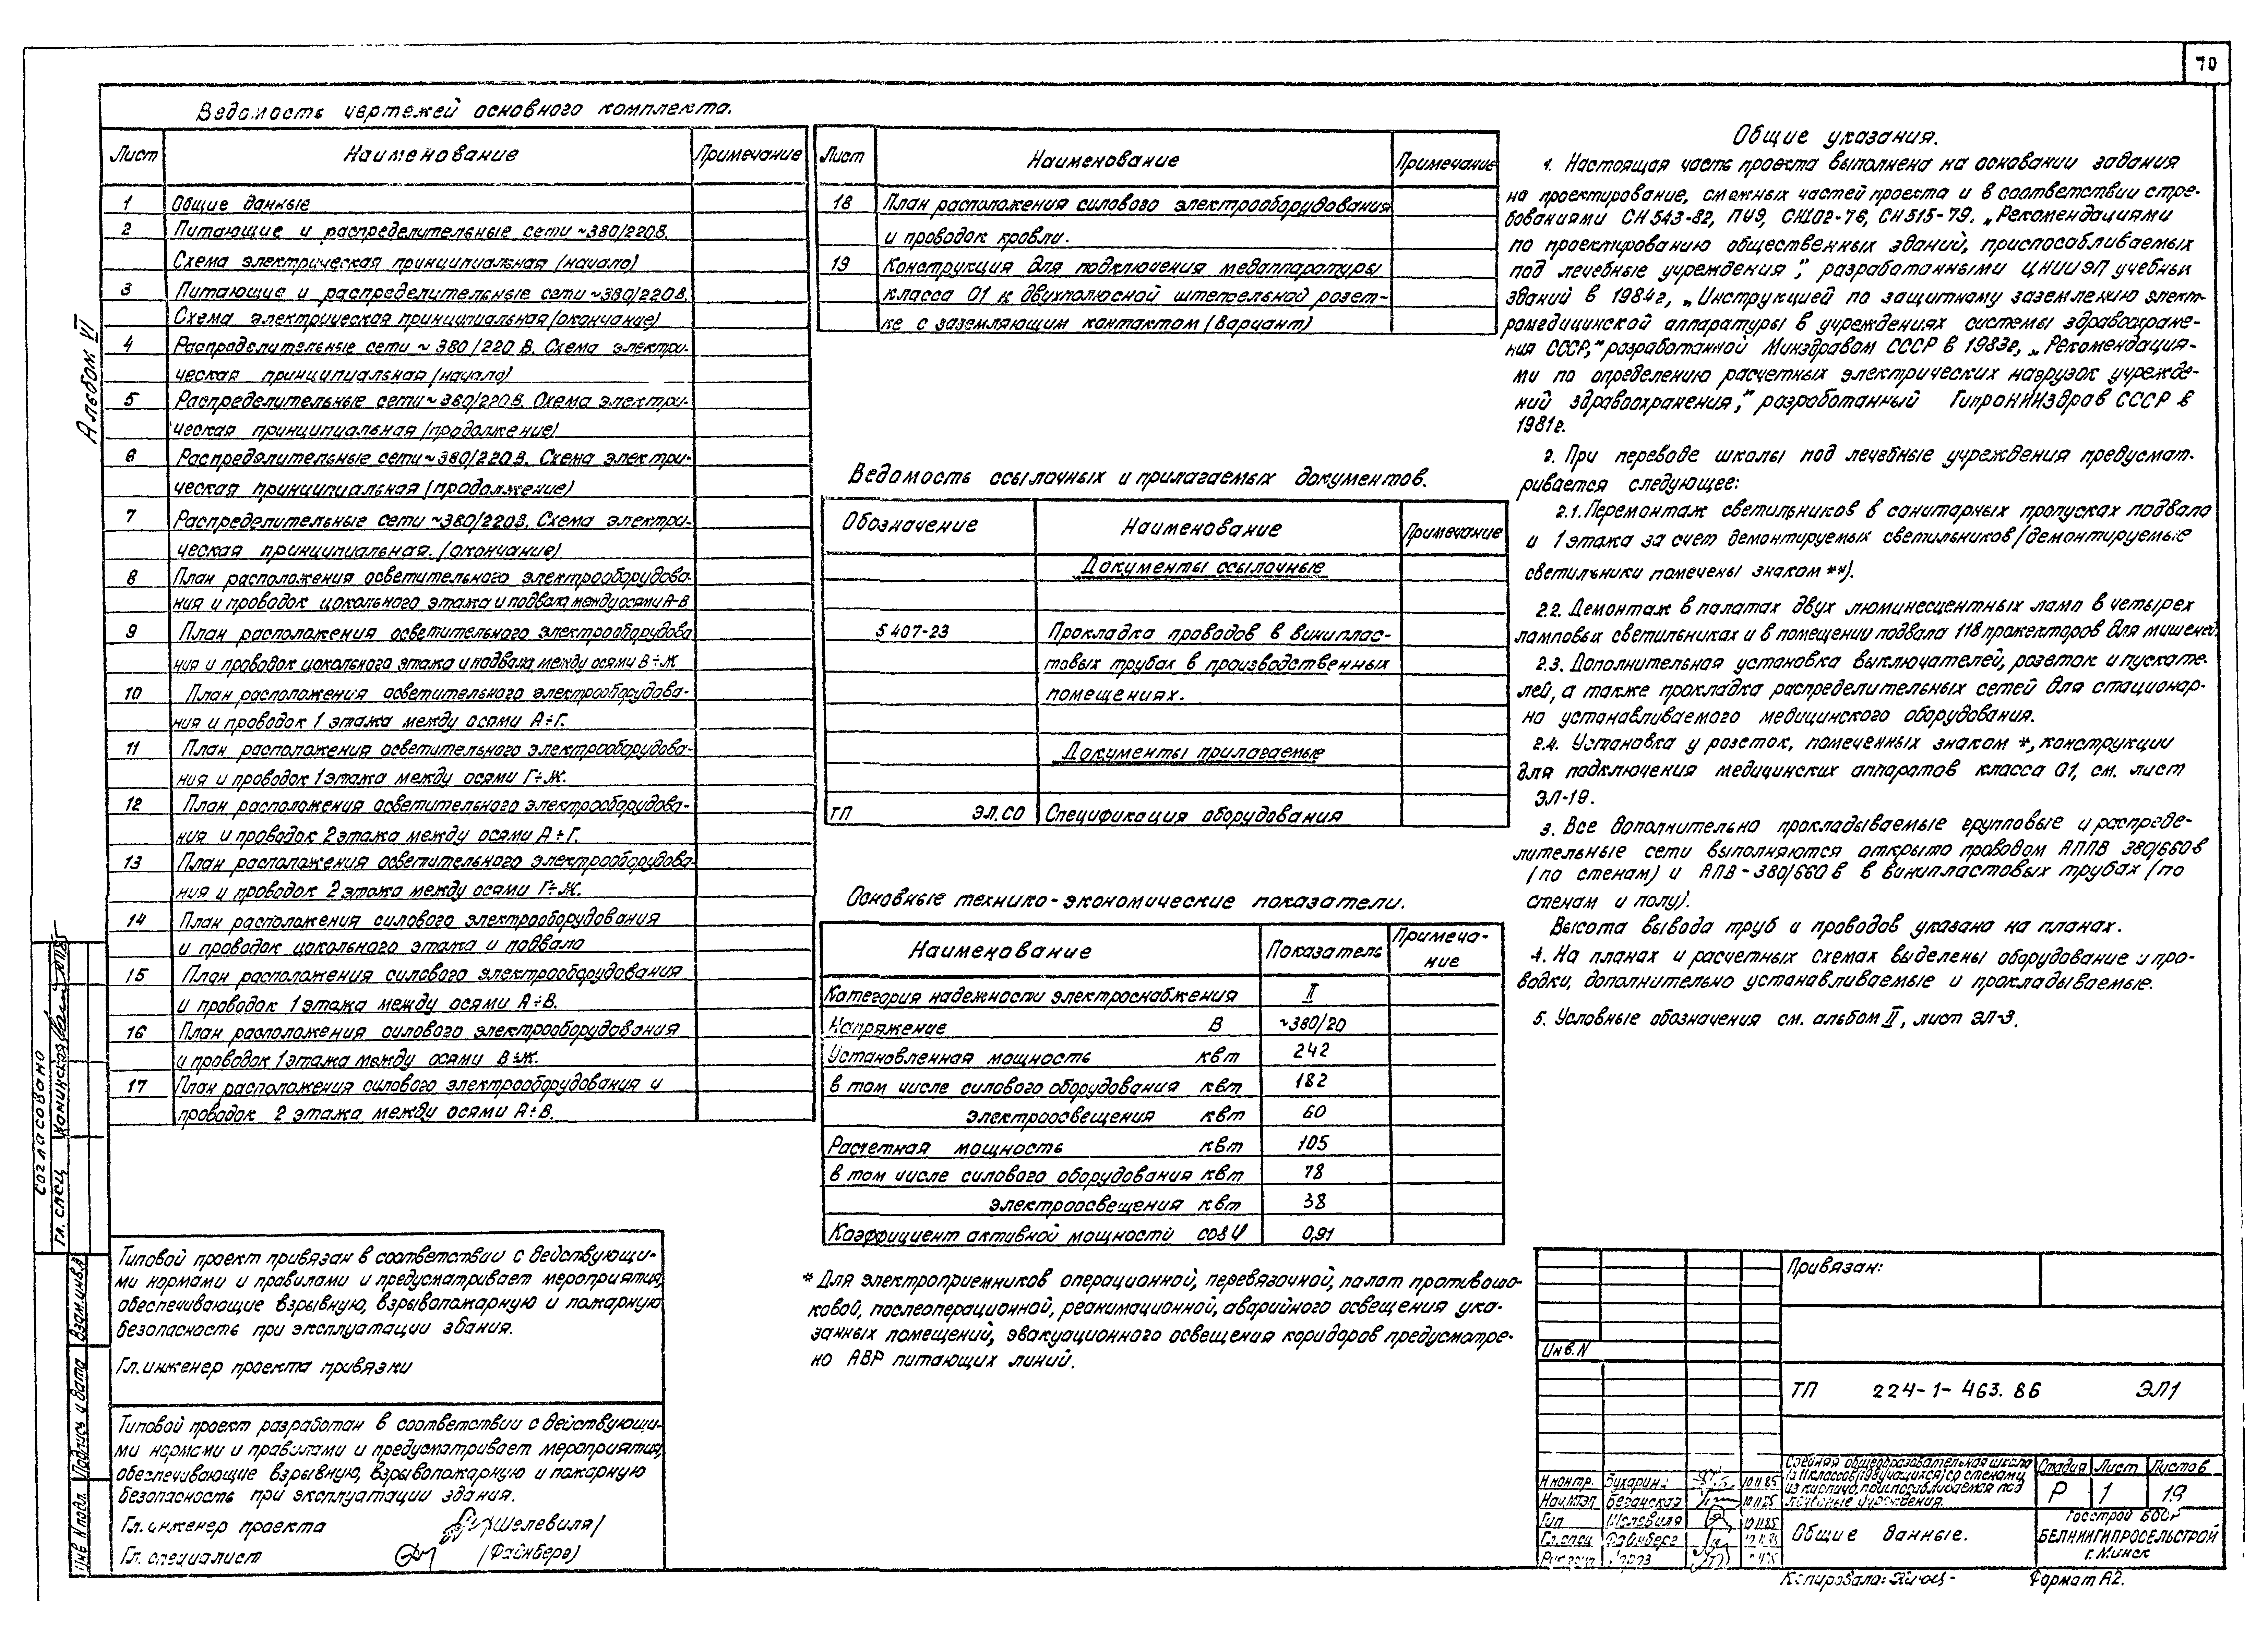 70
Альбом VI
Ведомость чертежей основного комплекта.
Лист Наименование Примечание
1 Общие данные
2 Питающие и распределительные сети ~380/220В.
Схема электрическая принципиальная (начало)
3 Питающие и распределительные сети ~380/220В.
Схема электрическая принципиальная (окончание)
4 Распределительные сети ~ 380/220 В. Схема электри-
ческая принципиальная (начало)
5 Распределительные сети ~380/220В. Схема электри-
ческая принципиальная (продолжение)
6 Распределительные сети ~380/220В. Схема электри-
ческая принципиальная (продолжение)
7 Распределительные сети ~380/220В. Схема электри-
ческая принципиальная. (окончание)
8 План расположения осветительного электрооборудова-
ния и проводок цокольного этажа и подвала между осями А-В
9 План расположения осветительного электрооборудова
ния и проводок цокольного этажа и подвала между осями В÷Ж
10 План расположения осветительного электрооборудова-
ния и проводок 1 этажа между осями А÷Г.
11 План расположения осветительного электрооборудова-
ния и проводок 1 этажа между осями Г÷Ж.
12 План расположения осветительного электрооборудова-
ния и проводок 2 этажа между осями А÷Г.
13 План расположения осветительного электрооборудова-
ния и проводок 2 этажа между осями Г÷Ж.
14 План расположения силового электрооборудования
и проводок цокольного этажа и подвала
15 План расположения силового электрооборудования
и проводок 1 этажа между осями А÷В.
16 План расположения силового электрооборудования
и проводок 1 этажа между осями В÷Ж.
17 План расположения силового электрооборудования и
проводок 2 этажа между осями А÷В.
Лист Наименование Примечание
18 План расположения силового электрооборудования
и проводок кровли.
19 Конструкция для подключения медаппаратуры
класса 01 к двухполюсной штепсельной розет-
ке с заземляющим контактом (вариант)
Ведомость ссылочных и прилагаемых документов.
Обозначение Наименование Примечание
Документы ссылочные
5 407-23 Прокладка проводов в винипла­с-
товых трубах в производственных
помещениях.
Документы прилагаемые
ТП ЭЛ.СО Спецификация оборудования
Основные технико-экономические показатели.
Наименование Показатель Примеча-
ние
Категория надежности электроснабжения II
Напряжение В ~380/20
Установленная мощность квт 242
в том числе силового оборудования квт 182
электроосвещения квт 60
Расчетная мощность квт 105
в том числе силового оборудования квт 78
электроосвещения квт 38
Коэффициент активной мощности cosφ 0,91
* Для электроприемников операционной, перевязочной, палат противошо-
ковой, послеоперационной, реанимационной, аварийного освещения ука-
занных помещений, эвакуационного освещения коридоров предусмотре-
но АВР питающих линий.
Общие указания.
1. Настоящая часть проекта выполнена на основании задания
на проектирование, смежных частей проекта и в соответствии с тре-
бованиями СН 543-82, ПУЭ, СН102-76, СН 515-79. „Рекомендациями
по проектированию общественных зданий, приспосабливаемых
под лечебные учреждения", разработанными ЦНИИЭП учебных
зданий в 1984г, „Инструкцией по защитному заземлению элект-
ромедицинской аппаратуры в учреждениях системы здравоохране-
ния СССР," разработанной Минздравом СССР в 1983г, „Рекомендация-
ми по определению расчетных электрических нагрузок учрежде-
ний здравоохранения," разработанный ГипроНИИздрав СССР в
1981г.
2. При переводе школы под лечебные учреждения предусмат-
ривается следующее:
2.1. Перемонтаж светильников в санитарных пропусках подвала
и 1 этажа за счет демонтируемых светильников (демонтируемые
светильники помечены знаком **).
2.2. Демонтаж в палатах двух люминесцентных ламп в четырех
ламповых светильниках и в помещении подвала 118 прожекторов для мишеней.
2.3. Дополнительная установка выключателей, розеток и пускате-
лей, а также прокладка распределительных сетей для стационар-
но устанавливаемого медицинского оборудования.
2.4. Установка у розеток, помеченных знаком *, конструкции
для подключения медицинских аппаратов класса 01, см. лист
ЭЛ-19.
3. Все дополнительно прокладываемые групповые и распреде-
лительные сети выполняются открыто проводом АППВ 380/660в
(по стенам) и АПВ-380/660 в в винипластовых трубах (по
стенам и полу).
Высота вывода труб и проводов указана на планах.
4. На планах и расчетных схемах выделены оборудование и про-
водки, дополнительно устанавливаемые и прокладываемые.
5. Условные обозначения см. альбом II, лист ЭЛ-3.
Типовой проект привязан в соответствии с действующи-
ми нормами и правилами и предусматривает мероприятия,
обеспечивающие взрывную, взрывопожарную и пожарную
безопасность при эксплуатации здания.
Гл. инженер проекта привязки
Типовой проект разработан в соответствии с действующи-
ми нормами и правилами и предусматривает мероприятия,
обеспечивающие взрывную, взрывопожарную и пожарную
безопасность при эксплуатации здания.
Гл. инженер проекта /Шелевиля/
Гл. специалист (Файнберг)
Согласовано
Гл. спец
Взам.инв.N
Подпись и дата
Инв N подл.
Привязан:
Инв. N
ТП 224-1-463.86 ЭЛ1
Н.контр. 10.11.85
Нач.МТЭП 10.11.85
Гип Шелевиля 10.11.85
Гл.спец Файнберг
Средняя общеобразовательная школа
на 11 классов (198 учащихся) со стенами
из кирпича, приспосабливаемая под
лечебные учреждения.
Стадия Лист Листов
Р 1 19
Общие данные.
Госстрой БССР
БЕЛНИИГИПРОСЕЛЬСТРОЙ
г. Минск
Копировала:
Формат А2.